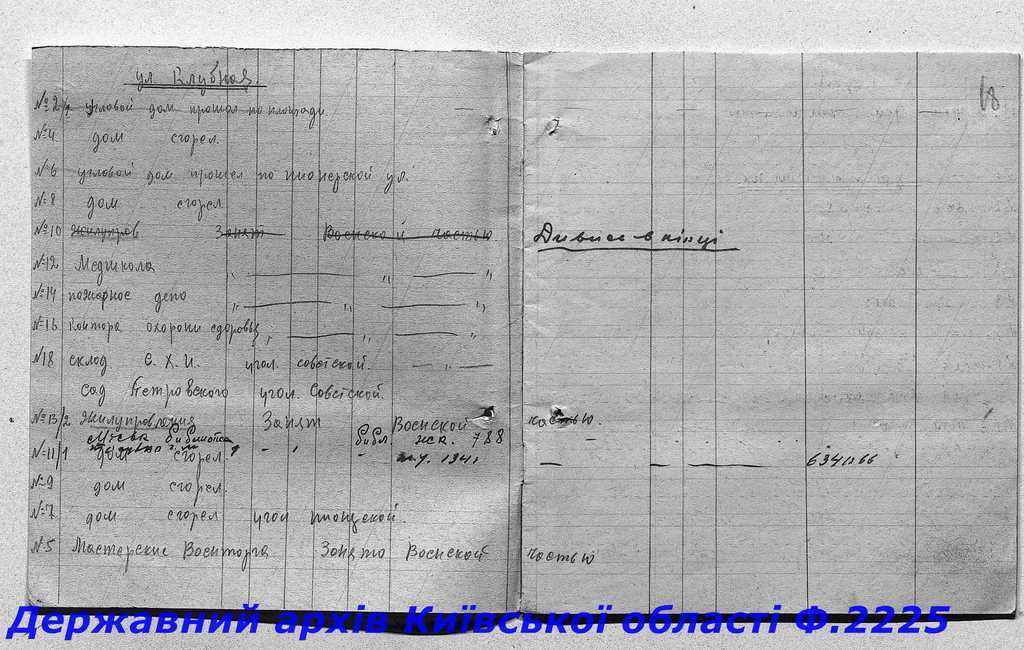 ул. Клубная.
18
№ 2/ угловой дом прошол по площади
№ 4 дом сгорел.
№ 6 угловой дом прошел по пионерской ул.
№ 8 дом сгорел
№ 10 Жилупров Занят Военской частью. Дивись в кінці
№ 12 Медшкола " — " — "
№ 14 пожарное депо " — " — "
№ 16 контора охорони здоровья, — " — "
№ 18 склад. С. Х. И. угол. советской. — " —
сад Петровского угол. Совєтской.
№ 13/2 Жилуправления Занят Военской частью.
Міська библиотека библ. 788
№ 11/1 дом сгорел 1941 — — — 6341,66
№ 9 дом сгорел.
№ 7 дом сгорел угол
№ 5 Мастерские Военторга Занято Военской частью
Державний архів Київської області Ф.2225